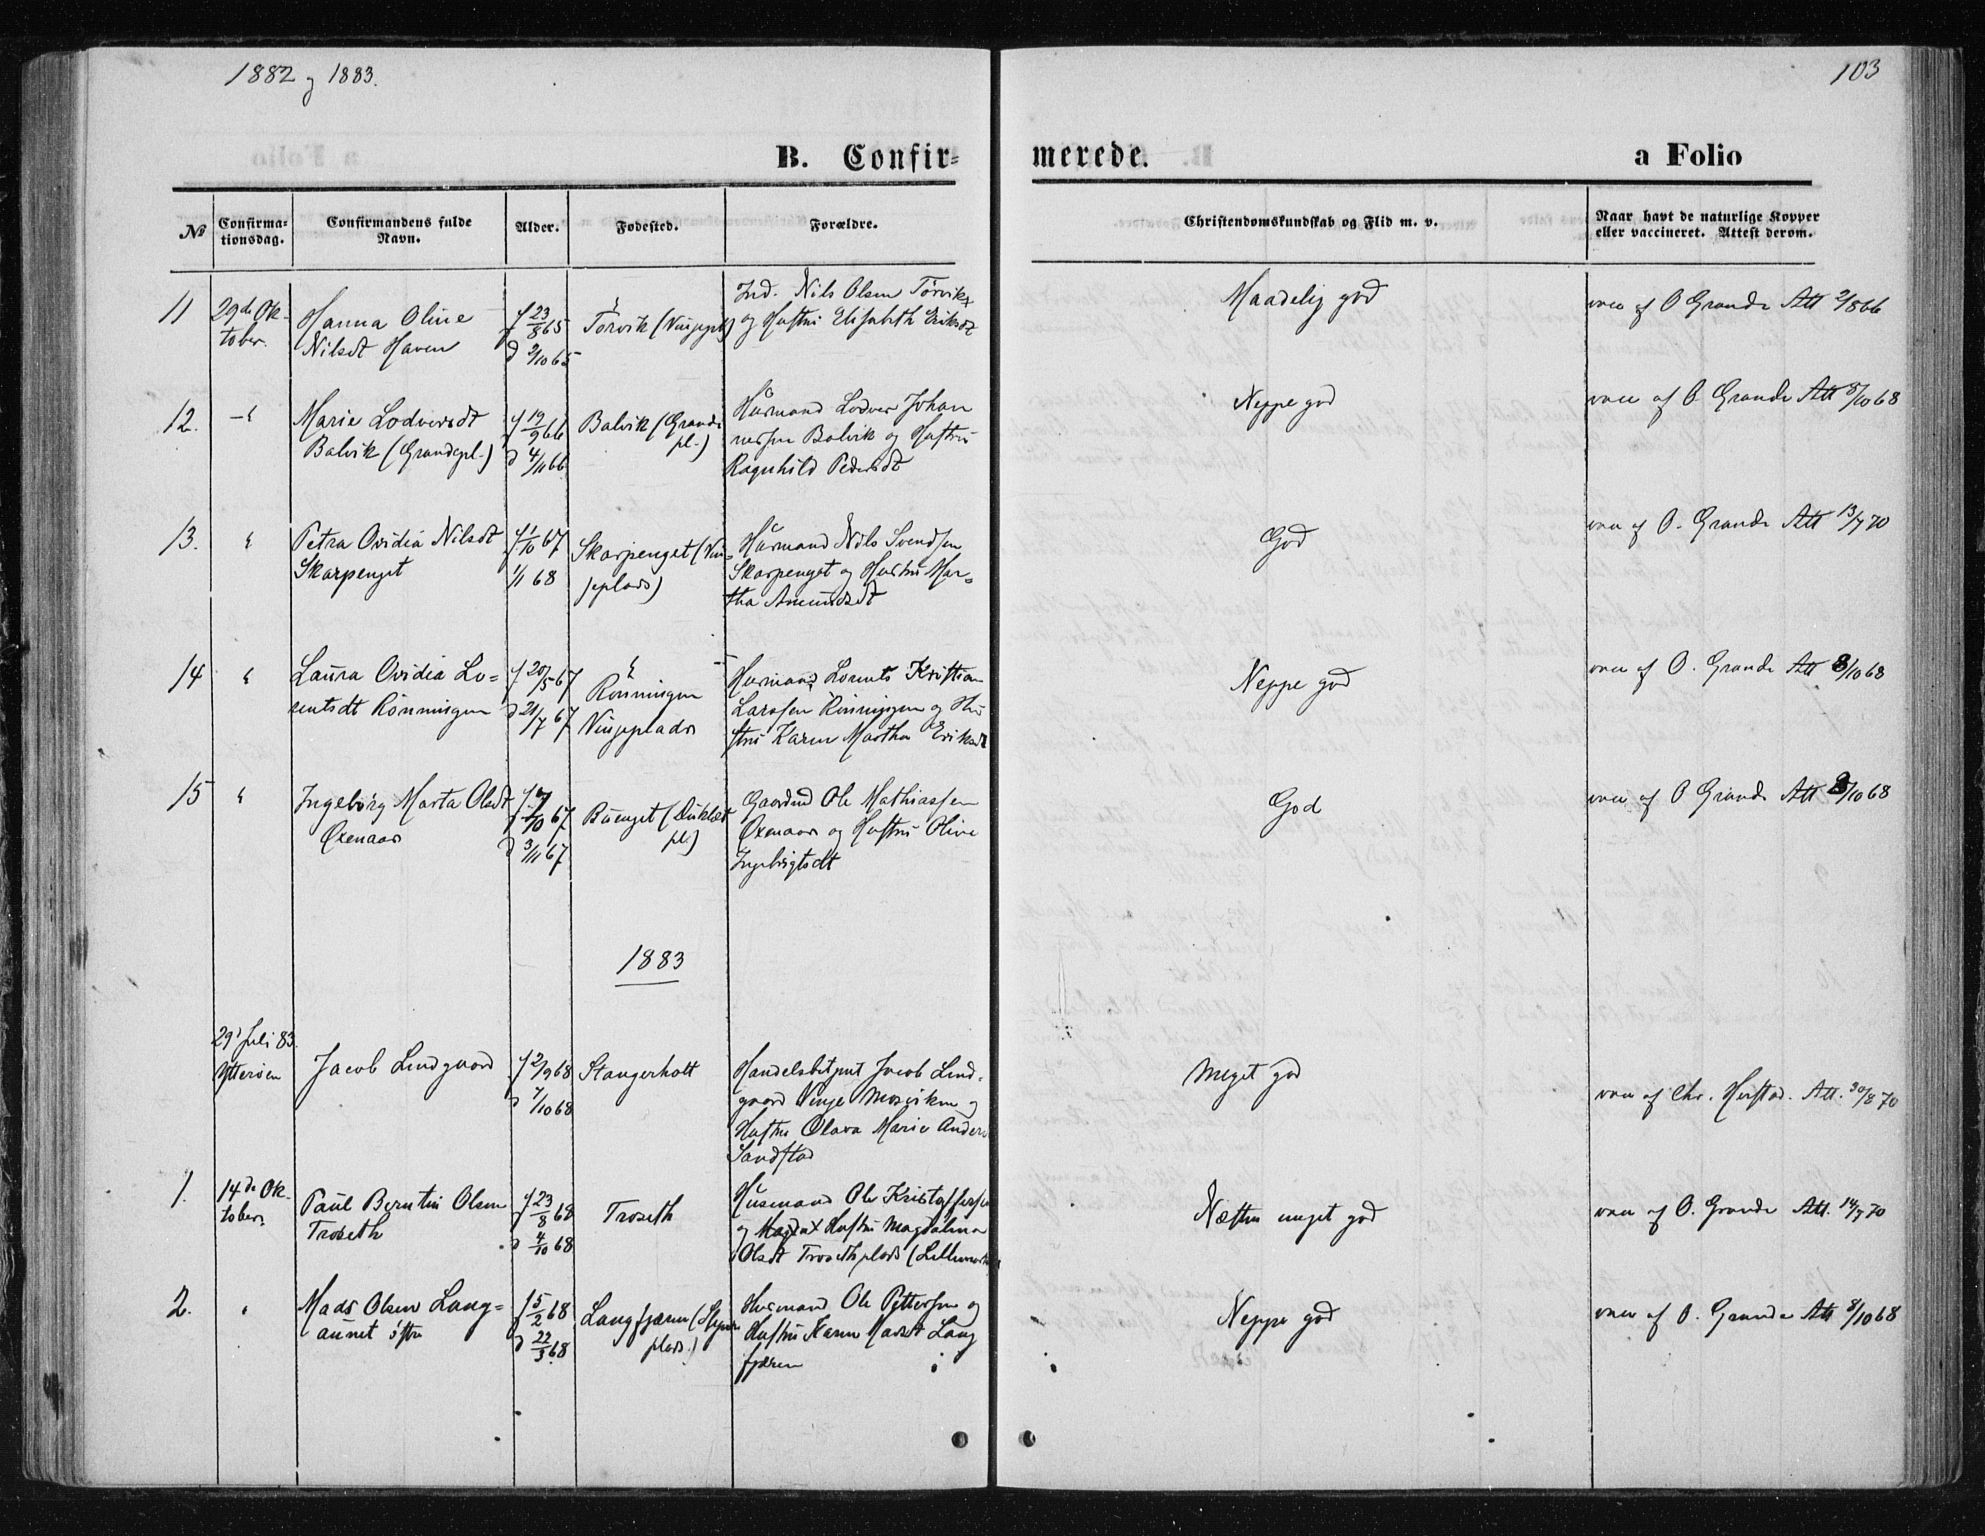 1882 og 1883.
103
B. Confir=
merede.
a Folio
No
Confirma-
tionsdag.
Confirmandens fulde
Navn.
Alder.
Fødested.
Forældre.
Christendomskundskab og Flid m. v.
Naar havt de naturlige Kopper
eller vaccineret. Attest derom.
11
29de Ok-
tober.
Hanna Oline
Nilsdt Haven
f 23/8 65
d 2/10 65
Torvik (Vinjepl)
Ind. Nils Olsen Torvik
og Hustru Elisabeth Eriksdt
Maadelig god
vacc af O Grande Att 2/8 66
12.
Marie Lodversdt
Balvik (Grandepl.)
f 19/9 66
d 4/11 66
Balvik (Grande
pl.)
Husmand Lodver Johan
nessen Balvik og Hustru
Ragnhild Pedersdt
Neppe god
vacc af O. Grande Att 8/10 68
13.
Petra Ovidia Nilsdt
Skarpenget
f 1/10 67
1/1 68
Skarpenget (Vin-
jeplads)
Husmand Nils Svendsen
Skarpenget og Hustru Mar-
tha Amundsdt
God
vacc af O. Grande Att 13/7 70
14
Laura Ovidia Lo=
rentsdt Rønningen
f 20/5 67
d 21/7 67
Rønningen
Vinjeplads
Husmand Lorents Kristian
Larssen Rønningen og Hu
stru Karen Martha Eriksdt
Neppe god
vacc af O. Grande Att 8/10 68
15
Ingeborg Marta Olsdt
Oxenaas
f 7/10 67
d 3/11 67
Buenget
pl.)
Gaardmd Ole Mathiassen
Oxenaas og Hustru Oline
Ingebrigtsdt
God
vacc af O Grande Att 8/10 68
1883
29' Juli 83.
Ytterøen
Jacob Lindgaard
f 2/9 68
d 7/10 68
Stangerholt
Handelsbetjent Jacob Lind-
gaard Vinje Mosviken og
Hustru Olava Marie Anders
Sandstad
Meget god
vacc af Chr. Herstad. Att. 30/8 70
1.
14de Ok-
tober.
Paul Berntin Olsen
Troseth
f 23/8 68
d 4/10 68
Troseth
Husmand Ole Kristoffersen
og Hustru Magdalina
Olsdt Trosethplads
Næsten meget god
vacc af O. Grande Att. 14/7 70
2.
Mads Olsen Lang=
aunet østre
f 5/2 68
d 22/3 68
Langfjæren
plads.)
Husmand Ole Pettersen og
Hustru Karen Madsdt Lang
fjæren
Neppe god
vacc af O. Grande Att 8/10 68